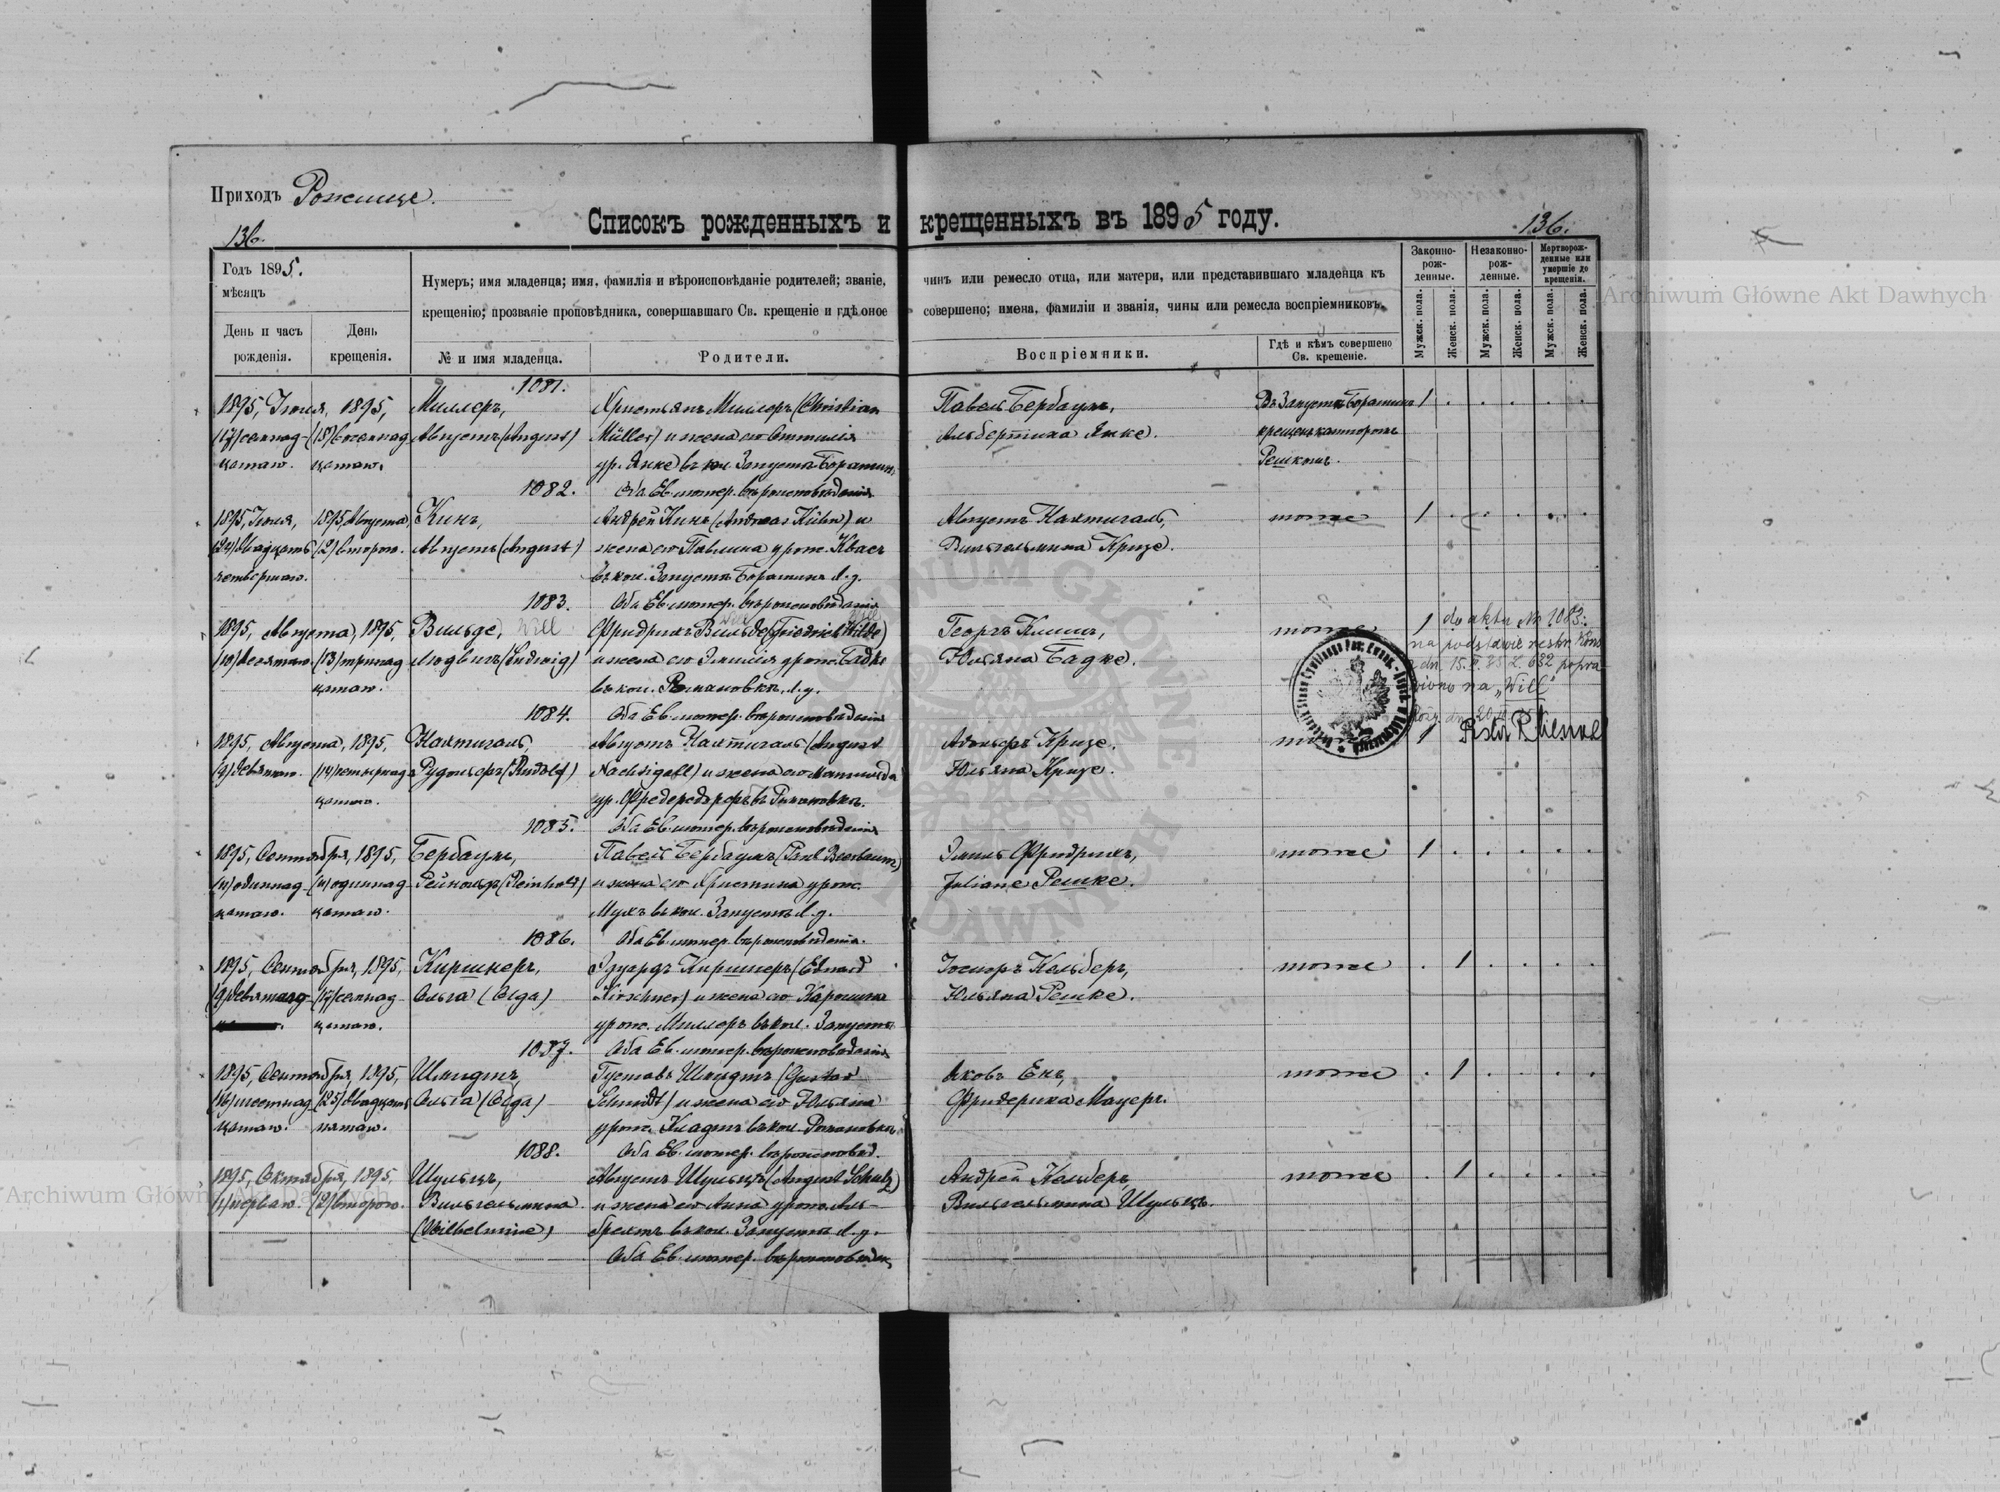 Приходъ Рожище.
136.
Списокъ рожденныхъ и крещенныхъ въ 1895 году.
136.
Годъ 1895.
мѣсяцъ
День и часъ рожденія.
День крещенія.
Нумеръ; имя младенца; имя, фамилія и вѣроисповѣданіе родителей; званіе, чинъ или ремесло отца, или матери, или представившаго младенца къ
крещенію; прозваніе проповѣдника, совершавшаго Св. крещеніе и гдѣ оное совершено; имена, фамиліи и званія, чины или ремесла воспріемниковъ.
№ и имя младенца.
Родители.
Воспріемники.
Гдѣ и кѣмъ совершено Св. крещеніе.
Законно-рож-денные.
Незаконно-рож-денные.
Мертворож-денные или умершіе до крещенія.
Мужск. пола.
Женск. пола.
Мужск. пола.
Женск. пола.
Мужск. пола.
Женск. пола.
1081.
1895, Іюля, 1895, Миллеръ, Христьянъ Миллеръ (Christian Павелъ Бербаумъ, 1
(17) семнад- (18) восемнад Августъ (August) Müller) и жена его Оттилія Альбертина Янке.
цатаго. цатаго. ур. Янке въ кол. Запустъ Боратинъ Решкомъ.
1082. Оба Ев. лютер. вѣроисповѣданія
1895, Іюля, 1895, Августа Кинъ, Андрей Кинъ (Andreas Kühn) и Августъ Нахтигаль, тоже 1
(24) двадцать (2) второго. Августъ (August) жена его Павлина урож. Квастъ Вильгельмина Кризе.
четвертаго. въ кол. Запустъ Боратинъ Л. у.
1083. Оба Ев. лютер. вѣроисповѣданія
1895, Августа, 1895, Вильде, Will Фридрихъ Вильде (Friedrich Wilde) Will Георгъ Климъ, тоже 1 do aktu Nr 1083.
(10) десятаго. (13) тринад Людвигъ (Ludwig) и жена его Эмилія урож. Бадке Юльяна Бадке. na podstawie
цатаго. въ кол. Романовкѣ, Л. у. 632 popra
wiono na „Will"
1084. Оба Ев. лютер. вѣроисповѣданія
1895, Августа, 1895, Нахтигаль, Августъ Нахтигаль (August Адольфъ Кризе. тоже 1 Pastor
(9) девятаго. (14) четырнад Рудольфъ (Rudolf) Nachtigall) и жена его Матильда Юльяна Кризе.
цатаго. въ Романовкѣ.
1085. Оба Ев. лютер. вѣроисповѣданія
1895, Сентября, 1895, Бербаумъ, Павелъ Бербаумъ (Paul Beerbaum) Эмиль Фридрихъ, тоже 1
(11) одиннад- (11) одиннад- Рейнольдъ (Reinhold) и жена его Христина урож. Juliane Решке.
цатаго. цатаго. въ кол. Запустъ Л. у.
1086. Оба Ев. лютер. вѣроисповѣданія.
1895, Сентября, 1895, Киршнеръ, Эдуардъ Киршнеръ (Eduard Іосифъ Кельберъ, тоже 1
(9) девятаго (17) семнад Ольга (Olga) Kirschner) и жена его Каролина Юльяна Решке.
цатаго. урож. Миллеръ въ кол. Запустъ
1087. Оба Ев. лютер. вѣроисповѣданія
1895, Сентября, 1895, Шмидтъ, Густавъ Шмидтъ (Gustav Яковъ тоже 1
(16) шестнад (25) двадцать Ольга (Olga) Schmidt) и жена его Юльяна Фридерика Мауеръ.
цатаго. пятаго. урож. въ кол. Романовкѣ
1088. Оба Ев. лютер. вѣроисповѣд.
1895, Октября, 1895, Шульцъ, Августъ Шульцъ (August Schulz) Андрей Кельберъ, тоже 1
(1) перваго. (2) второго. Вильгельмина и жена его Анна урож. Аль- Вильгельмина Шульцъ.
(Wilhelmine) брехтъ въ кол. Запустъ Л. у.
Оба Ев. лютер. вѣроисповѣдан.
Archiwum Główne Akt Dawnych
Archiwum Główne Akt Dawnych
ARCHIWUM GŁÓWNE AKT DAWNYCH